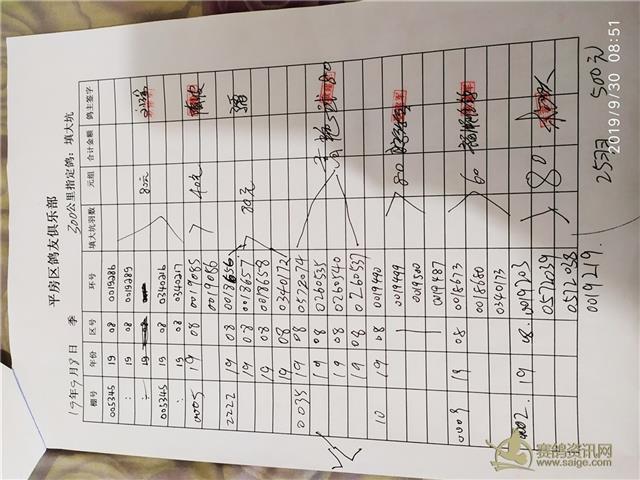 平房区鸽友俱乐部
19年9月 日 季 300公里指定鸽:填大坑
棚号 年份 区号 环号 填大坑羽数 元组 合计金额 鸽主签字
005345 19 08 0019286
: 19 08 0019289
80元
005345 19 08 0340216
: 19 08 0340217
0005 19 08 0019085 40元
0019086
2222 19 08
19 08 0018657 80元
19 08 0018658
19 08 0340172
0035 19 08 0572074
19 08 0260535
19 08 0260540
19 08 0260537
10 19 08 0019490
0019499 80
0019500
0019487
0009 19 08 0018673
0018680 60
0340173
0002. 19 08. 0019203
0572039 80.
0572038
0019219.
25羽 500元
2019/9/30 08:51
赛鸽资讯网
www.saige.com